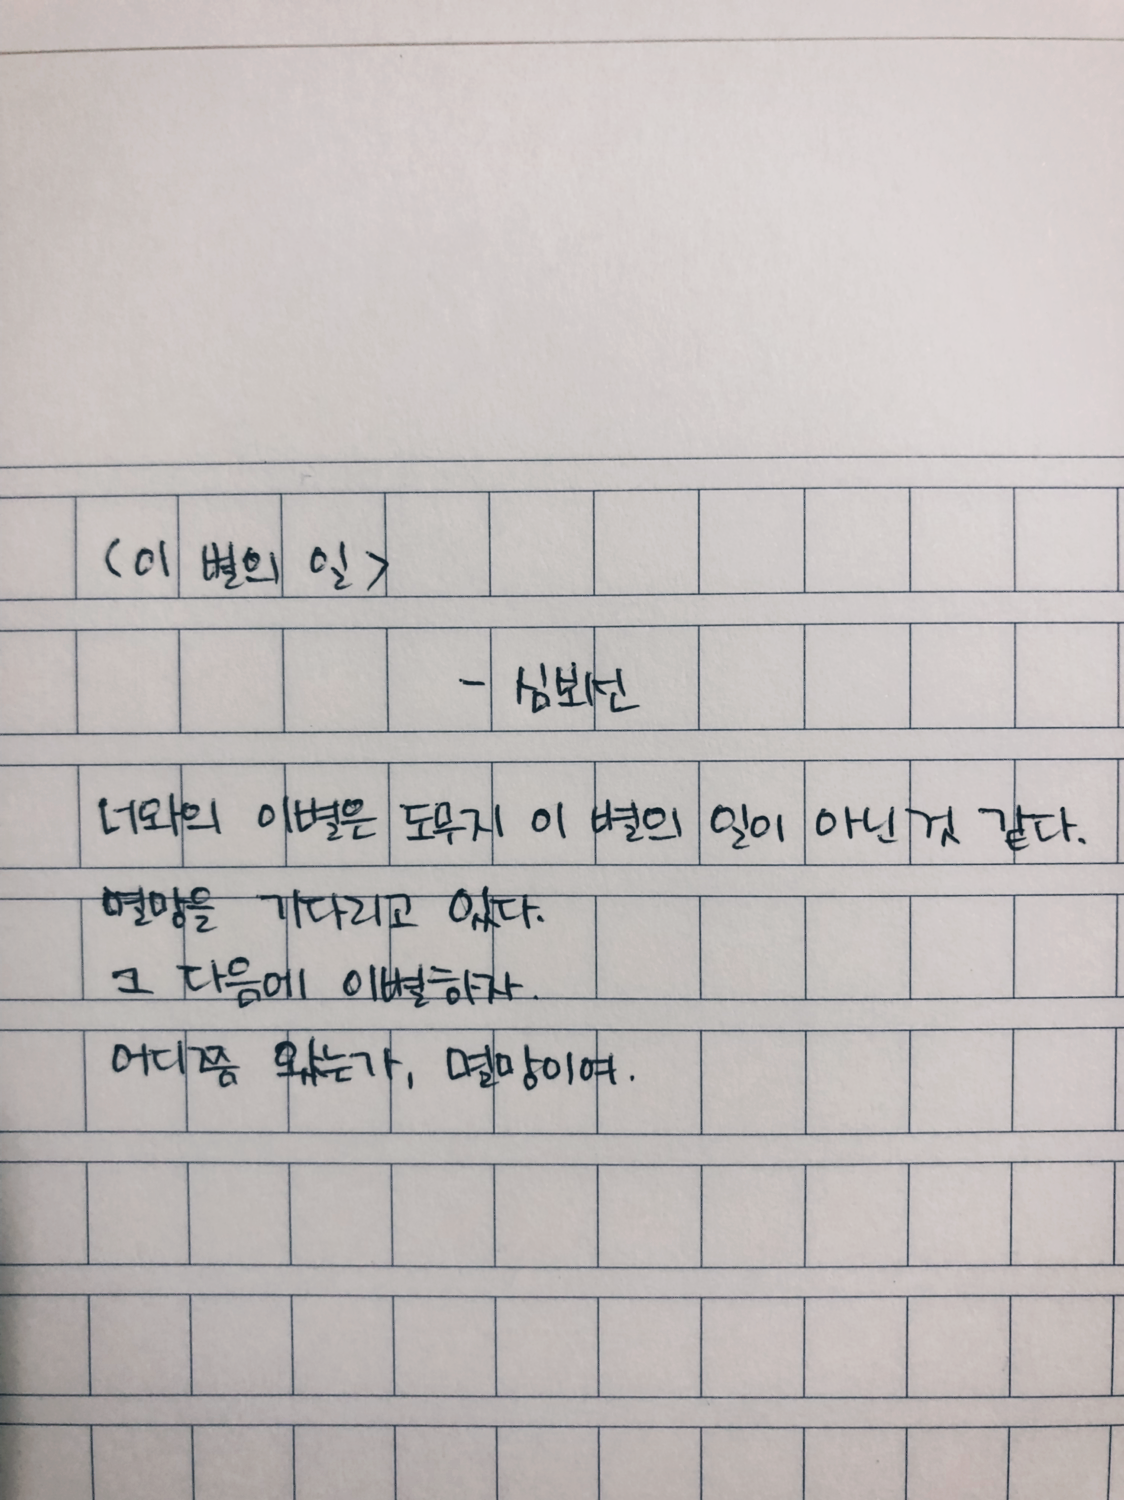 <이 별의 일>
- 심보선
너와의 이별은 도무지 이 별의 일이 아닌 것 같다.
멸망을 기다리고 있다.
그 다음에 이별하자.
어디쯤 왔는가, 멸망이여.